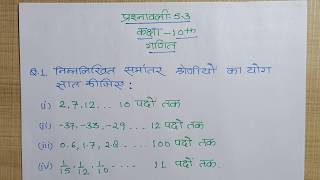 प्रश्नावली: 5.3
कक्षा - 10th
गणित
Q.1. निम्नलिखित समांतर श्रेणीयों का योग
ज्ञात कीजिए:
(i) 2, 7, 12 ... 10 पदों तक
(ii) -37, -33, -29 ... 12 पदों तक
(iii) 0.6, 1.7, 2.8 .... 100 पदों तक
(iv) 1/15, 1/12, 1/10 .... 11 पदों तक.